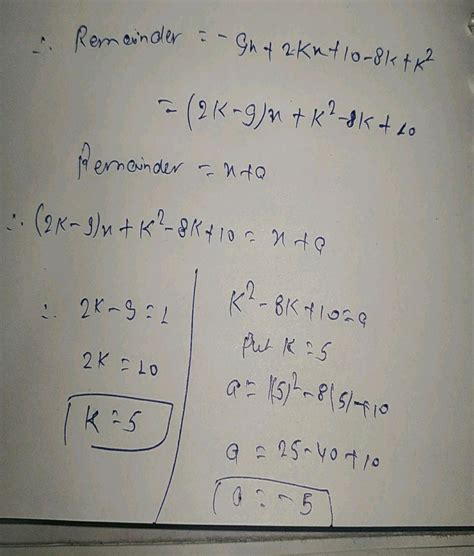 ∴ Remainder = -9x + 2Kx + 10 - 8K + K²
= (2K-9)x + K² - 8K + 10
Remainder = x + a
∴ (2K-9)x + K² - 8K + 10 = x + a
∴ 2K - 9 = 1
2K = 10
K = 5
K² - 8K + 10 = a
Put K = 5
a = (5)² - 8(5) + 10
a = 25 - 40 + 10
a = -5